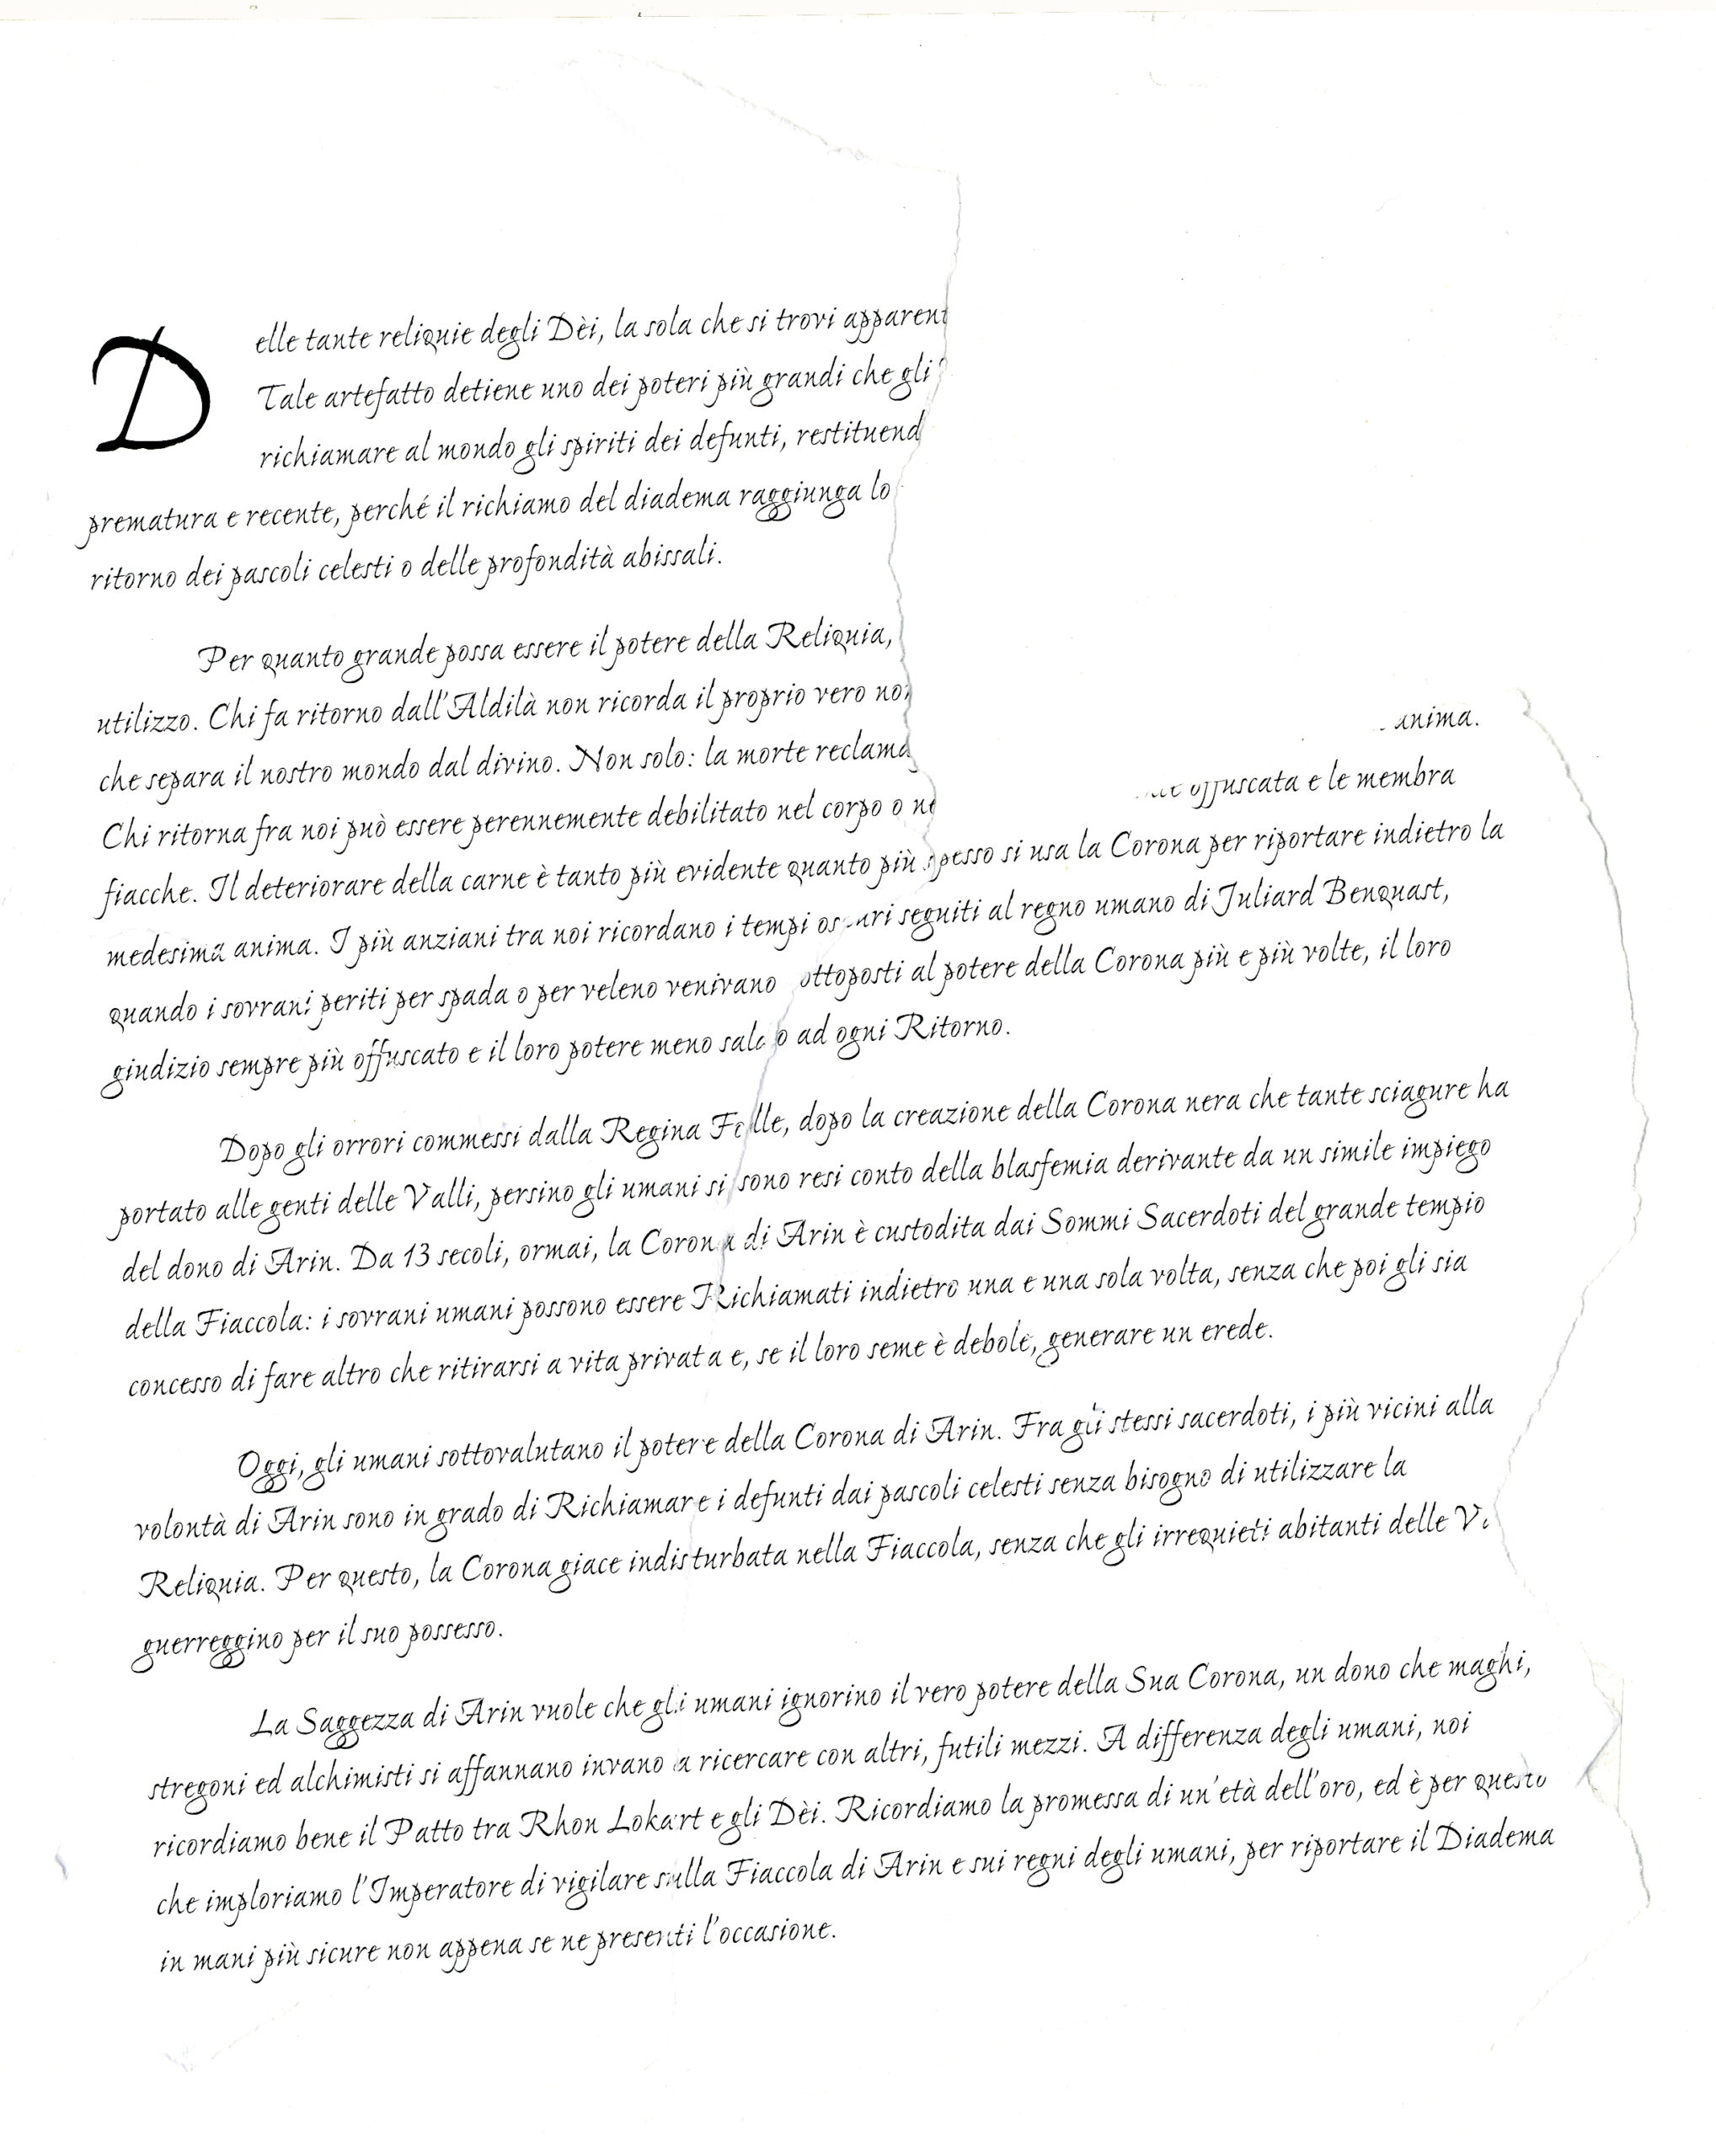 Delle tante reliquie degli Dèi, la sola che si trovi
Tale artefatto detiene uno dei poteri più grandi che gli
richiamare al mondo gli spiriti dei defunti,
prematura e recente, perché il richiamo del diadema raggiunga lo
ritorno dei pascoli celesti o delle profondità abissali.
Per quanto grande possa essere il potere della Reliquia,
utilizzo. Chi fa ritorno dall'Aldilà non ricorda il proprio vero
anima.
che separa il nostro mondo dal divino. Non solo: la morte
offuscata e le membra
Chi ritorna fra noi può essere perennemente debilitato nel corpo o
fiacche. Il deteriorare della carne è tanto più evidente quanto più spesso si usa la Corona per riportare indietro la
medesima anima. I più anziani tra noi ricordano i tempi oscuri seguiti al regno umano di Juliard Benquast,
quando i sovrani periti per spada o per veleno venivano ottoposti al potere della Corona più e più volte, il loro
giudizio sempre più offuscato e il loro potere meno saldo ad ogni Ritorno.
Dopo gli orrori commessi dalla Regina Folle, dopo la creazione della Corona nera che tante sciagure ha
portato alle genti delle Valli, persino gli umani si sono resi conto della blasfemia derivante da un simile impiego
del dono di Arin. Da 13 secoli, ormai, la Corona di Arin è custodita dai Sommi Sacerdoti del grande tempio
della Fiaccola: i sovrani umani possono essere Richiamati indietro una e una sola volta, senza che poi gli sia
concesso di fare altro che ritirarsi a vita privata e, se il loro seme è debole, generare un erede.
Oggi, gli umani sottovalutano il potere della Corona di Arin. Fra gli stessi sacerdoti, i più vicini alla
volontà di Arin sono in grado di Richiamare i defunti dai pascoli celesti senza bisogno di utilizzare la
Reliquia. Per questo, la Corona giace indisturbata nella Fiaccola, senza che gli irrequieti abitanti delle
guerreggino per il suo possesso.
La Saggezza di Arin vuole che gli umani ignorino il vero potere della Sua Corona, un dono che maghi,
stregoni ed alchimisti si affannano invano a ricercare con altri, futili mezzi. A differenza degli umani, noi
ricordiamo bene il Patto tra Rhon Lokart e gli Dèi. Ricordiamo la promessa di un'età dell'oro, ed è per questo
che imploriamo l'Imperatore di vigilare sulla Fiaccola di Arin e sui regni degli umani, per riportare il Diadema
in mani più sicure non appena se ne presenti l'occasione.